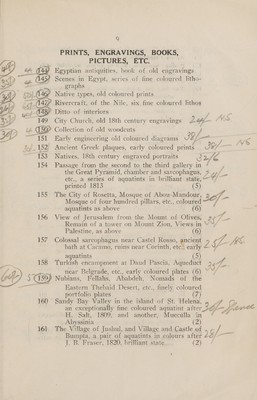 6
PRINTS, ENGRAVINGS, BOOKS,
PICTURES, ETC.
144 Egyptian antiquities, book of old engravings
145 Scenes in Egypt, series of fine coloured litho-
graphs
146 Native types, old coloured prints
147 Rivercraft, of the Nile, six fine coloured lithos
148 Ditto of interiors
149 City Church, old 18th century engravings 24/- NS
150 Collection of old woodcuts
151 Early engineering old coloured diagrams 30/-
152 Ancient Greek plaques, early coloured prints 30/- NS
153 Natives, 18th century engraved portraits 32/6
154 Passage from the second to the third gallery in
the Great Pyramid, chamber and sarcophagus,
etc., a series of aquatints in brilliant state,
printed 1813 (5)
155 The City of Rosetta, Mosque of Abou-Mandour,
Mosque of four hundred pillars, etc., coloured
aquatints as above (6)
156 View of Jerusalem from the Mount of Olives,
Remain of a tower on Mount Zion, Views in
Palestine, as above (6)
157 Colossal sarcophagus near Castel Rosso, ancient
bath at Cacmus, ruins near Corinth, etc., early
aquatints (5)
158 Turkish encampment at Daud Pascia, Aqueduct
near Belgrade, etc., early coloured plates (6)
159 Nubians, Fellahs, Ababdeh, Nomads of the
Eastern Thebaid Desert, etc., finely coloured
portfolio plates (7)
160 Sandy Bay Valley in the island of St. Helena,
an exceptionally fine coloured aquatint after
H. Salt, 1809, and another, Mucculla in
Abyssinia (2)
161 The Village of Jushul, and Village and Castle of
Burupia, a pair of aquatints in colours after
J. B. Fraser, 1820, brilliant state... (2)